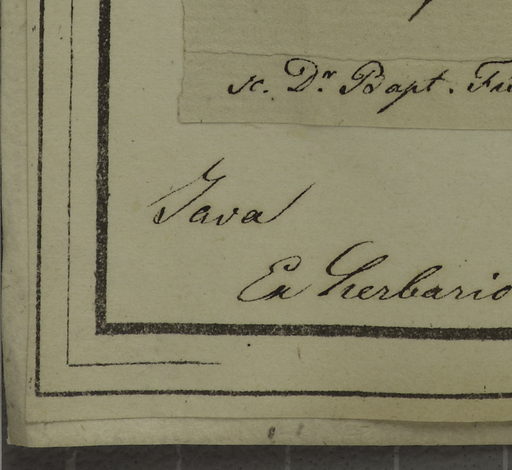 sc. Dr. Bapt.
Java
Ex herbario